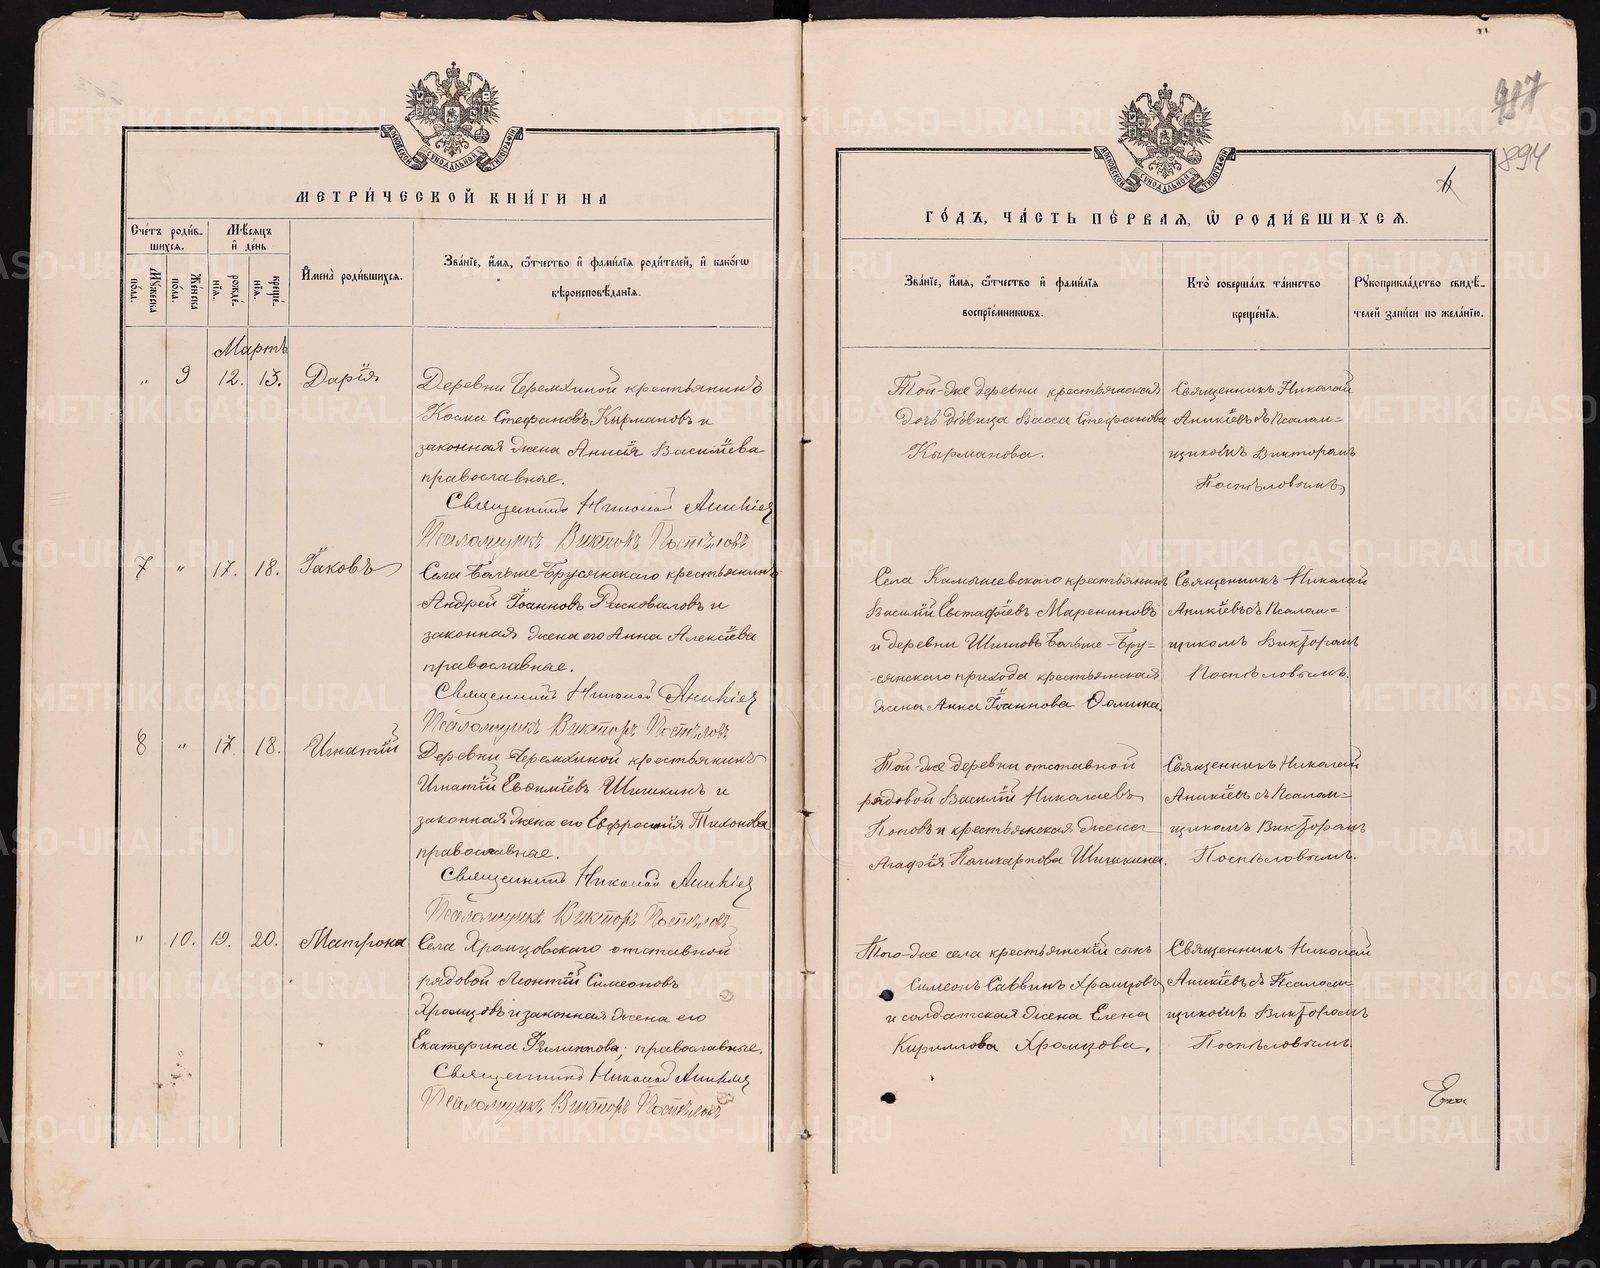 МЕТРИ́ЧЕСКОЙ КНИ́ГИ НА
Сче́тъ роди́в-
шихся.
Мѣсяцъ
и҆ де́нь
Му́жеска по́ла.
Же́нска по́ла.
рожде́нїя.
креще́нїя.
И҆мена̀ роди́вшихся.
Зва́нїе, и҆́мя, ѻ҆́тчество и҆ фами́лїя роди́телей, и҆ како́гѡ
вѣроисповѣ́данїя.
Мартъ
„ 9 12. 13. Дарія
Деревни Черемхиной крестьянинъ
Косма Стефановъ Кырмановъ и
законная жена Анисія Василіева
православные.
Священникъ Николай Аникіевъ
Псаломщикъ Викторъ Поспѣловъ
7 „ 17. 18. Іаковъ
Села Больше-Брусянскаго крестьянинъ
Андрей Іоанновъ Расковаловъ и
законная жена его Анна Алексіева
православные.
Священникъ Николай Аникіевъ
Псаломщикъ Викторъ Поспѣловъ
8 „ 17. 18. Игнатій
Деревни Черемхиной крестьянинъ
Игнатій Евѳиміевъ Шишкинъ и
законная жена его Евфросинія Тихонова
православные.
Священникъ Николай Аникіевъ
Псаломщикъ Викторъ Поспѣловъ
„ 10. 19. 20. Матрона
Села Храмцовскаго отставной
рядовой Леонтій Симеоновъ
Храмцовъ и законная жена его
Екатерина Филиппова; православные.
Священникъ Николай Аникіевъ
Псаломщикъ Викторъ Поспѣловъ
894
ГО́ДЪ, ЧА́СТЬ ПЕ́РВАЯ, Ѽ РОДИ́ВШИХСЯ.
Зва́нїе, и҆́мя, ѻ҆́тчество и҆ фами́лїя
воспрїе́мникѡвъ.
Кто̀ соверша́лъ та́инство
креще́нїя.
Рꙋкоприкла́дство свидѣ́-
телей за́писи по жела́нїю.
Той-же деревни крестьянская
дочь дѣвица Васса Стефанова
Кырманова.
Священникъ Николай
Аникіевъ съ Псалом=
щикомъ Викторомъ
Поспѣловымъ
Села Камышевскаго крестьянинъ
Василій Евстафіевъ Марениновъ
и деревни Шиповъ Больше-Бру=
сянскаго прихода крестьянская
жена Анна Іоаннова Ѳомина.
Священникъ Николай
Аникіевъ съ Псалом=
щикомъ Викторомъ
Поспѣловымъ.
Той-же деревни отставной
рядовой Василій Николаевъ
Поповъ и крестьянская жена
Агафія Поликарпова Шишкина.
Священникъ Николай
Аникіевъ съ Псалом=
щикомъ Викторомъ
Поспѣловымъ.
Того-же села крестьянскій сынъ
Симеонъ Саввинъ Храмцовъ
и солдатская жена Елена
Кириллова Храмцова.
Священникъ Николай
Аникіевъ съ Псалом=
щикомъ Викторомъ
Поспѣловымъ.
METRIKI.GASO-URAL.RU